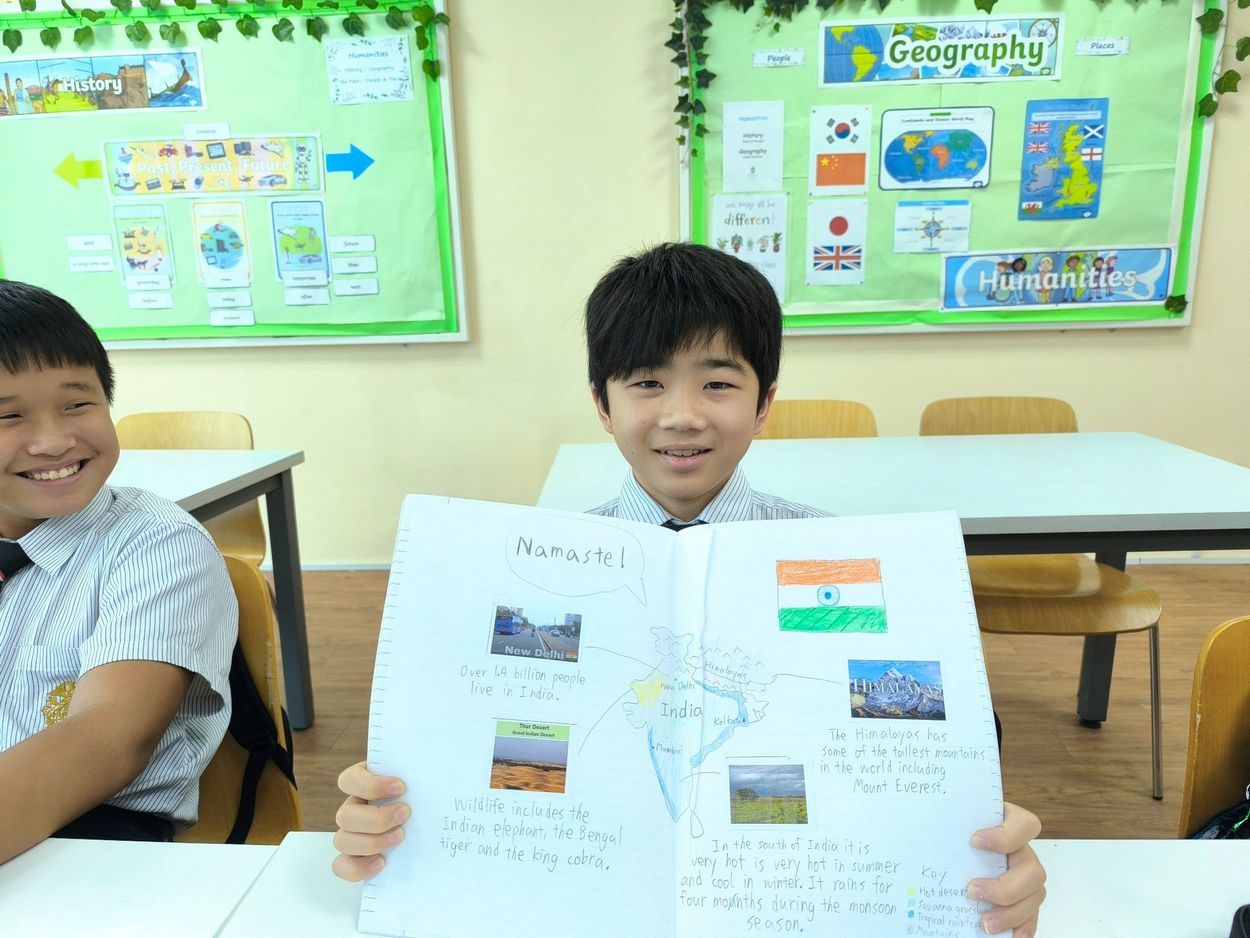 History
Humanities
History / Geography
The Past / People & Places
timeline
Past, Present, Future
past
a long time ago
yesterday
before
now
today
present
tomorrow
after
future
then
next
People
Geography
Places
Humanities
History
Geography
Continents and Oceans World Map
we may all be
different
Humanities
Namaste!
New Delhi
Over 1.4 billion people
live in India.
Thar Desert
Great Indian Desert
Wildlife includes the
Indian elephant, the Bengal
tiger and the king cobra.
Himalayas
New Delhi
India
Kolkata
Mumbai
HIMALAYAS
The Himalayas has
some of the tallest mountains
in the world including
Mount Everest.
In the south of India it is
very hot is very hot in summer
and cool in winter. It rains for
four months during the monsoon
season.
Key
Hot desert
Savanna grassland
Tropical rainforest
Mountains